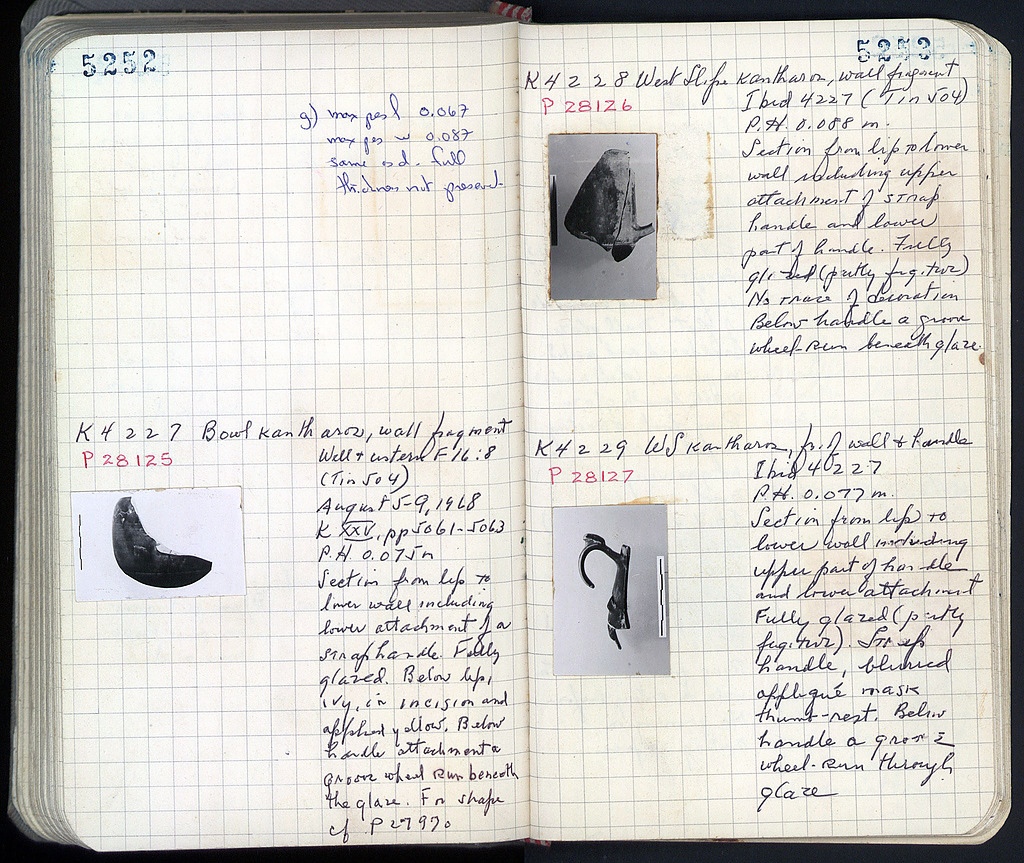 5252
g) max pes l 0.067
max pes w 0.087
same ed. full
thickness not preserved.
K 4227 Bowl kantharos, wall fragment
P 28125
Well & cistern F 16:8
(Tin 504)
August 5-9, 1968
K XXV, pp 5061-5063
P.H 0.075m
Section from lip to
lower wall including
lower attachment of a
strap handle. Fully
glazed. Below lip,
ivy, in incision and
applied yellow. Below
handle attachment a
groove wheel run beneath
the glaze. For shape
cf P 27970
5253
K 4228 West Slope kantharos, wall fragment
P 28126
Ibid 4227 (Tin 504)
P.H. 0.088 m.
Section from lip to lower
wall including upper
attachment of strap
handle and lower
part of handle. Fully
glazed (partly fugitive)
No trace of decoration
Below handle a groove
wheel-run beneath glaze.
K 4229 WS kantharos, fr. of wall & handle
P 28127
Ibid 4227
P.H. 0.077 m.
Section from lip to
lower wall including
upper part of handle
and lower attachment
Fully glazed (partly
fugitive). Strap
handle, blurred
appliqué mask
thumb-rest. Below
handle a groove
wheel-run through
glaze